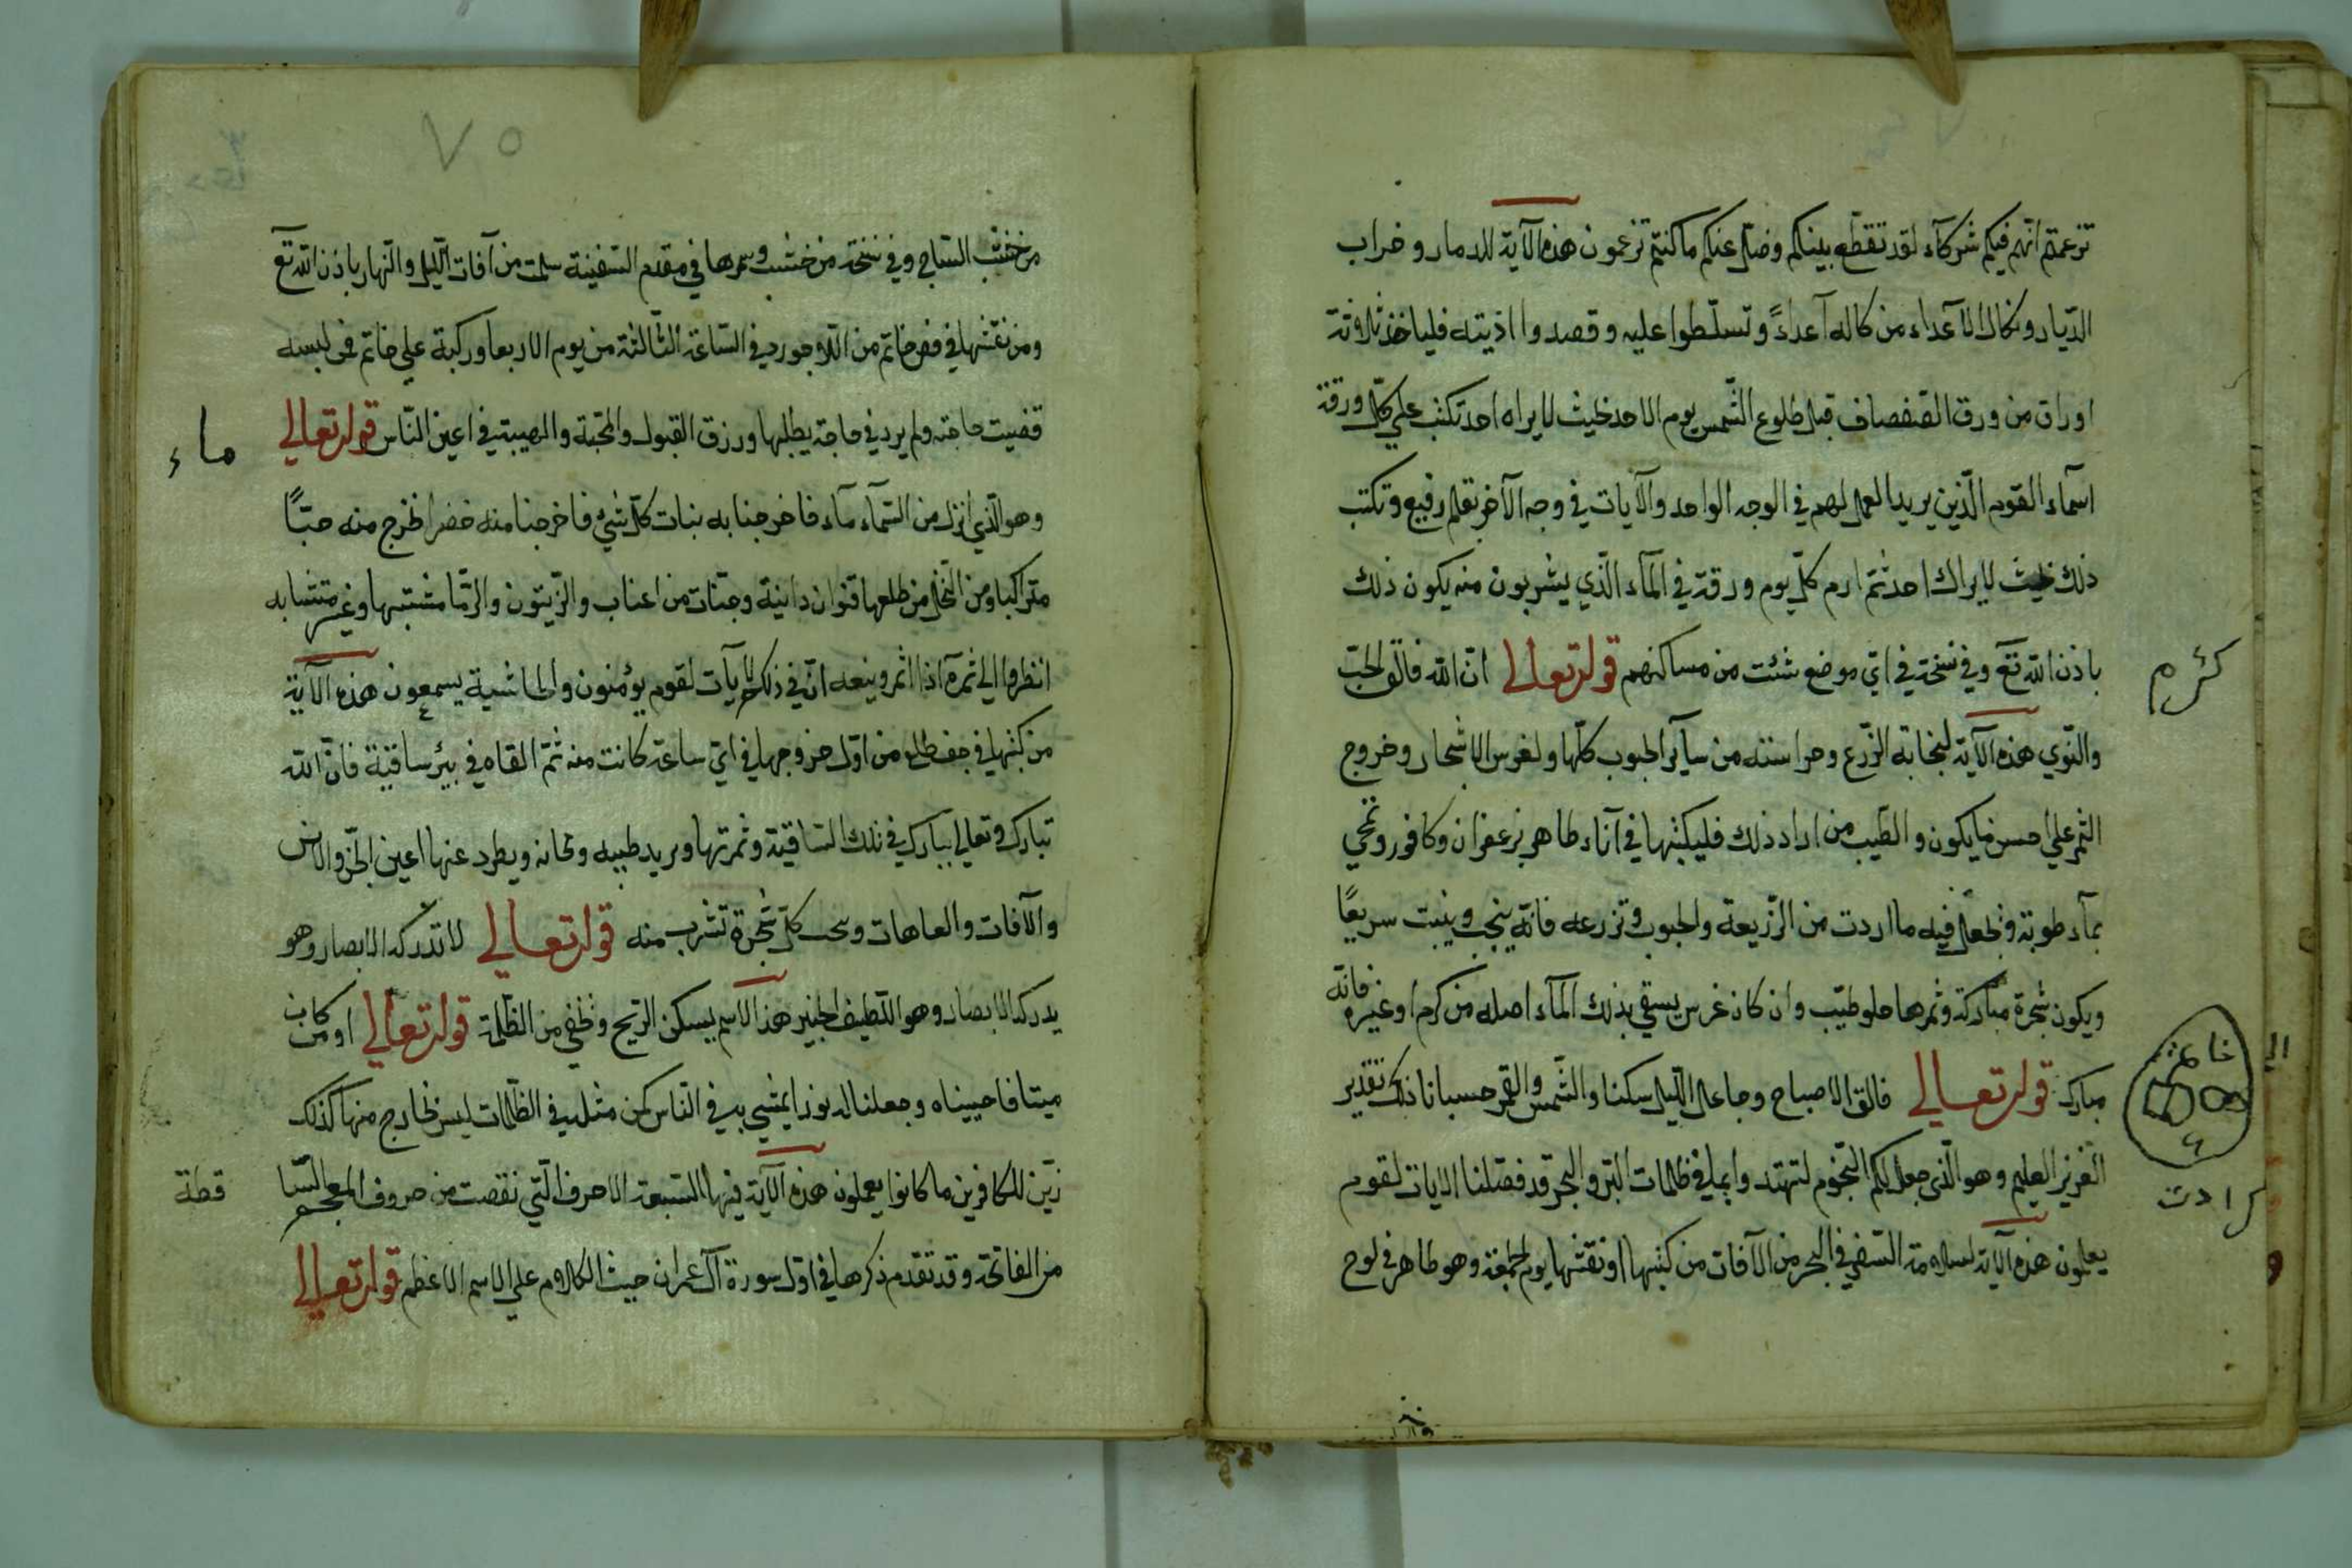 تزعمتم انهم فيكم شركآء لقد تقطع بينكم وضل عنكم ما كنتم تزعمون هذه الآية للدمار وخراب
الديار ونكال الاعداء من كاله آعداءً وتسلّطوا عليه وقصدوا اذيته فلياخذ ثلاثة
اوراق من ورق القفصاف قبل طلوع الشّمس يوم الاحد بحيث لا يراه احد تكتب علي كلّ ورقة
اسمآء القوم الّذين يريد العمل لهم في الوجه الواحد والآيات في وجه الآخر بقلم رفيع وتكتب
ذلك بحيث لا يراك احد ثمّ ارم كلّ يوم ورقة في المآء الّذي يشربون منه يكون ذلك
باذن الله تع وفي نسخة في ايّ موضع شئت من مساكنهم قوله تعالي انّ الله فالق الحبّ
كرم
والنّوي هذه الآية لنجابة الزّرع وحراسته من سآير الحبوب كلّها ولغرس الاشجار وخروج
الثمر علي احسن ما يكون والطّيب من اراد ذلك فليكتبها في آناء طاهر بزعفران وكافور وتمحي
بمآء طوبة وتجعل فيه ما اردت من الزّريعة والحبوب وتزرعه فانّه ينجب وينبت سريعًا
ويكون شجرة مباركة وثمرها حلو طيّب وان كان غرس يسقي بذلك المآء اصله من كرم او غيره فانّه
مبارك قوله تعالي فالق الاصباح وجاعل اللّيل سكنا والشّمس والقمر حسبانا ذلك تقدير
خاتم
العزيز العليم وهو الّذي جعل لكم النّجوم لتهتدوا بها في ظلمات البرّ والبحر قد فصّلنا الايات لقوم
يعلمون هذه الآية لسلامة السّفر في البحر من الآفات من كتبها او نقشها يوم الجمعة وهو طاهر في لوح
٧٥
من خشب السّاج وفي نسخة من خشب وسمرها في مقدم السّفينة سلمت من آفات اللّيل والنّهار باذن الله تع
ومن نقشها في فص خاتم من اللّاجورد في السّاعة الثّالثة من يوم الاربعا وركبة علي خاتم فمن لبسه
قضيت حاجته ولم يرد في حاجة يطلبها ورزق القبول والمحبّة والهيبة في اعين النّاس قوله تعالي
ماء
وهو الّذي انزل من السّمآء مآء فاخرجنا به نبات كلّ شيء فاخرجنا منه خضرا نخرج منه حبّاً
متراكبا ومن النّخل من طلعها قنوان دانية وجنّات من اعناب والزّيتون والرّمّا مشتبها وغير متشابه
انظروا الي ثمره اذا اثمر وينعه انّ في ذلكم لآيات لقوم يؤمنون والحاشية يسمعون هذه الآية
من كتبها في جف طلع من اوّل خروجها في ايّ ساعة كانت منه ثمّ القاه في بئر ساقية فانّ الله
تبارك وتعالي يبارك في تلك السّاقية وثمرتها ويريد طيبه ونمانه ويطرد عنها اعين الجنّ والانس
والآفات والعاهات كلّ شجرة تشرب منه قوله تعالي لا تدركه الابصار وهو
يدرك الابصار وهو اللّطيف الخبير هذا الاسم يسكن الرّيح ونخفي من الظّلمة قوله تعالي او من كان
ميتا فاحييناه وجعلنا له نورا يمشي به في النّاس كمن مثله في الظّلمات ليس بخارج منها كذلك
زيّن للكافرين ما كانوا يعملون هذه الآية فيها السّبعة الاحرف الّتي نقصت من حروف المعجم السّا
قطة
من الفاتحة وقد تقدم ذكرها في اوّل سورة آل عمران حيث الكلام علي الاسم الاعظم قوله تعالي